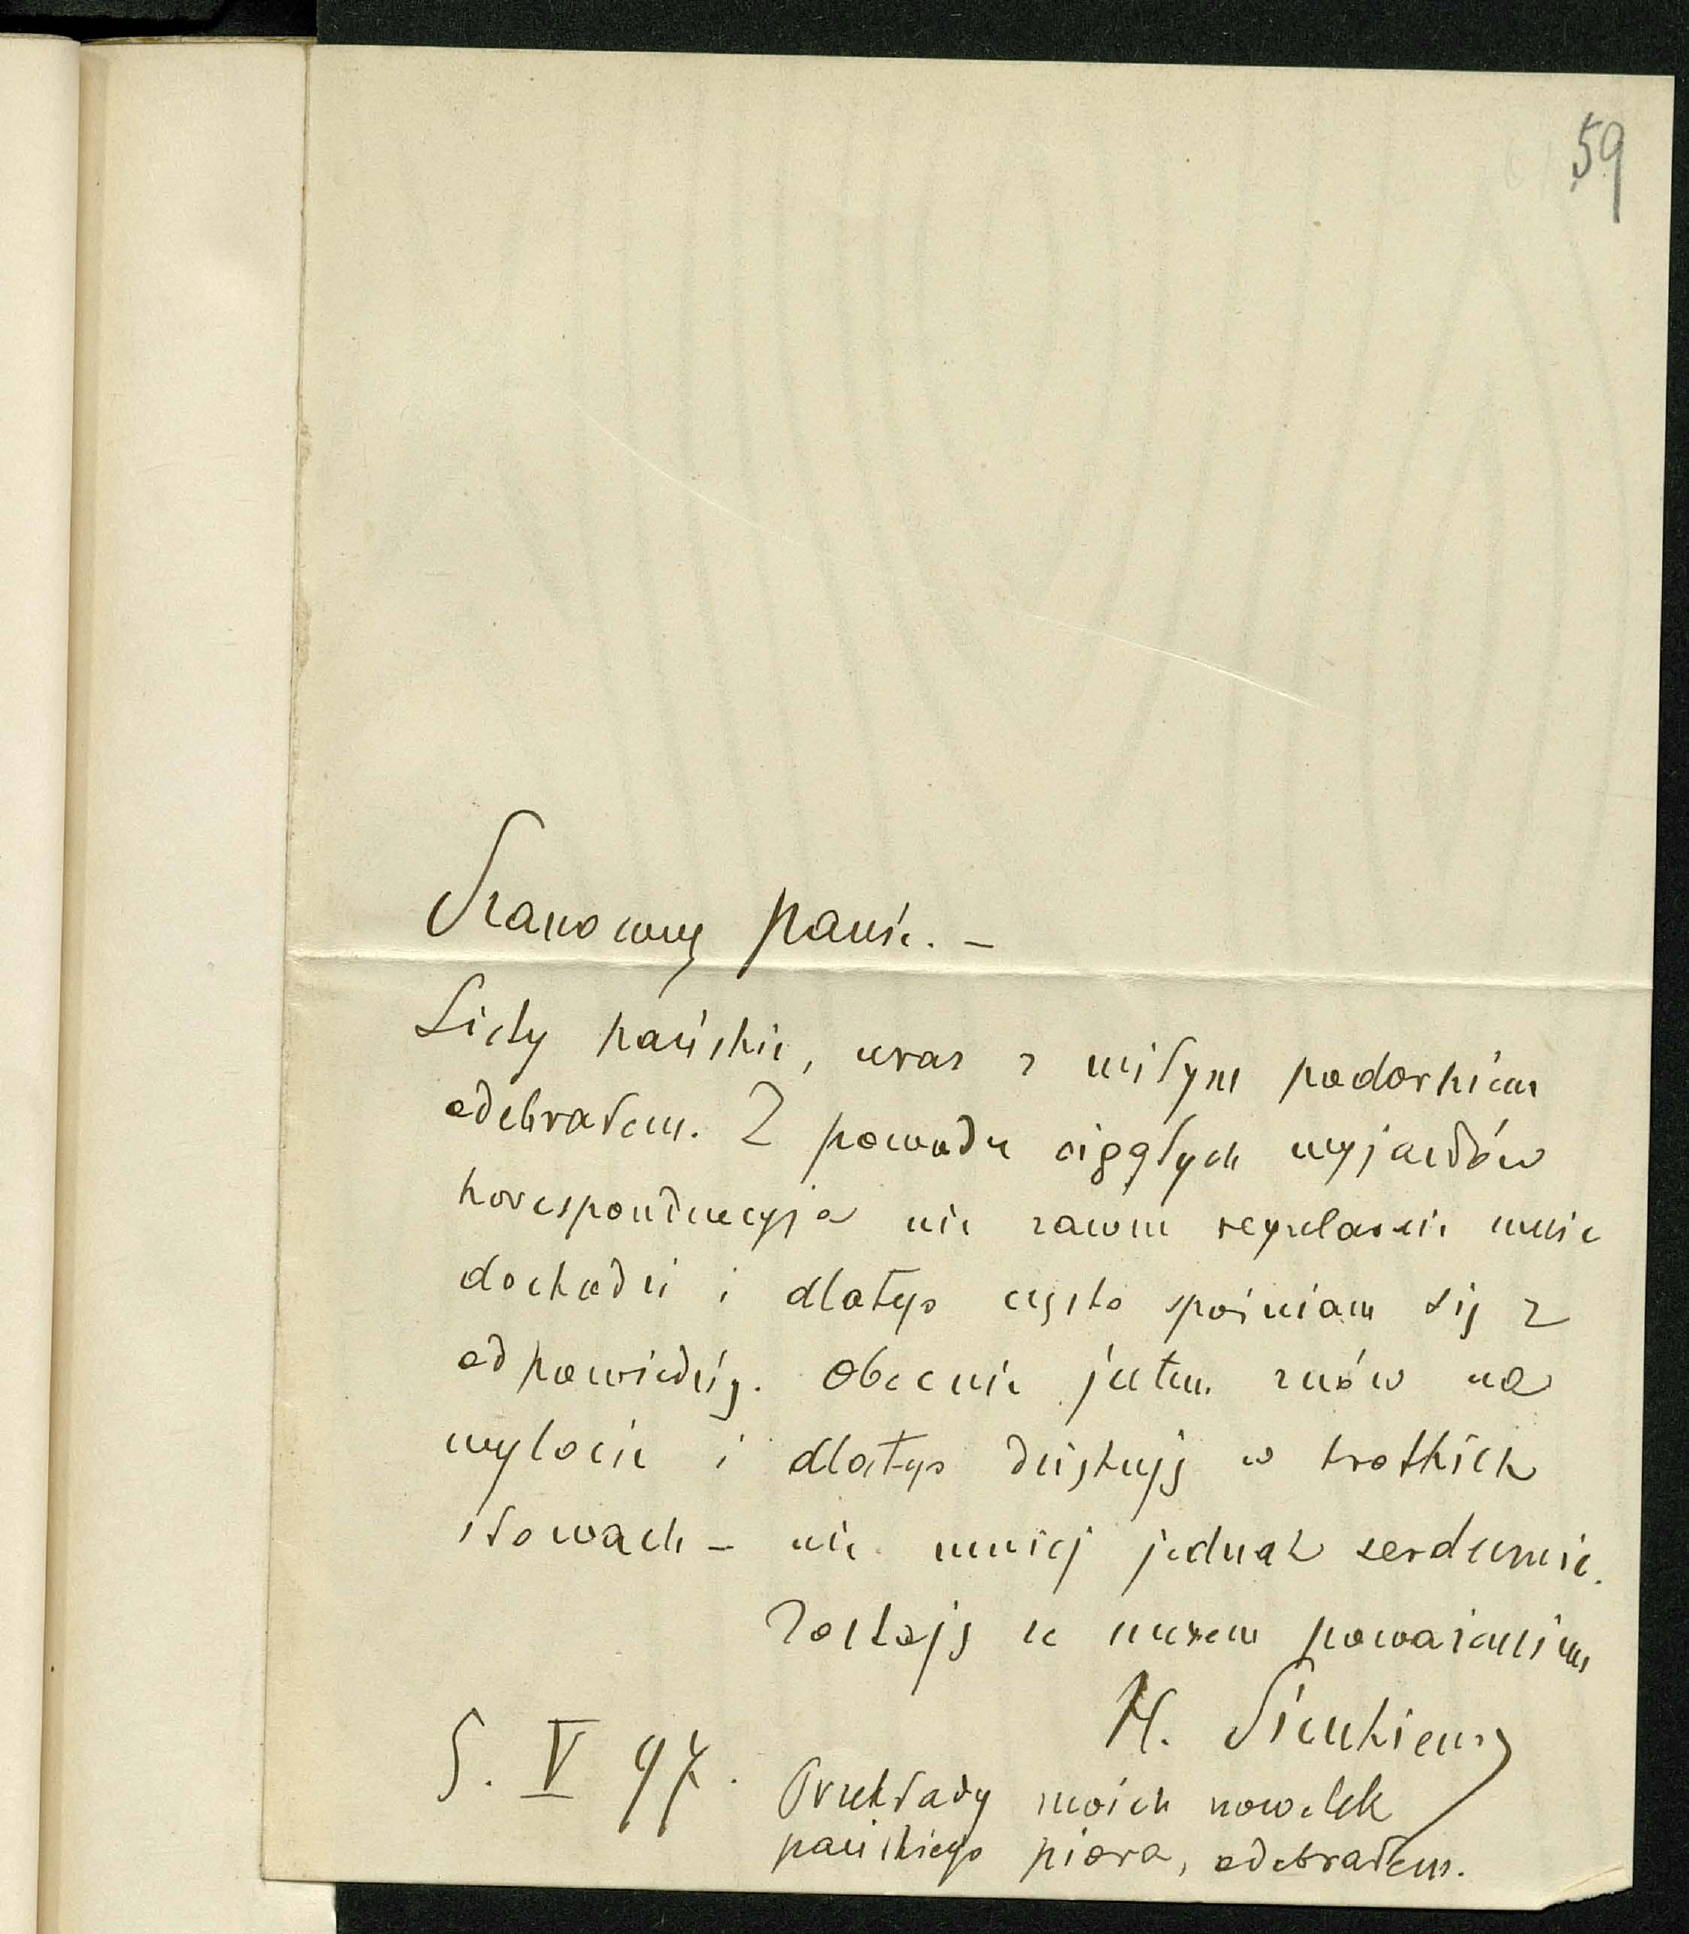 59
Szanowny Panie. –
Listy pańskie, wraz z miłym podarkiem
odebrałem. Z powodu ciągłych wyjazdów
korespondencyja nie zawsze regularnie mnie
dochodzi i dlatego często spóźniam się z
odpowiedzią. Obecnie jestem znów na
wylocie i dlatego dziękuję w krótkich
słowach – nie mniej jednak serdecznie.
Zostaję ze
H. Sienkiewicz
5. V 97.
Przekłady moich nowelek
pańskiego pióra, odebrałem.